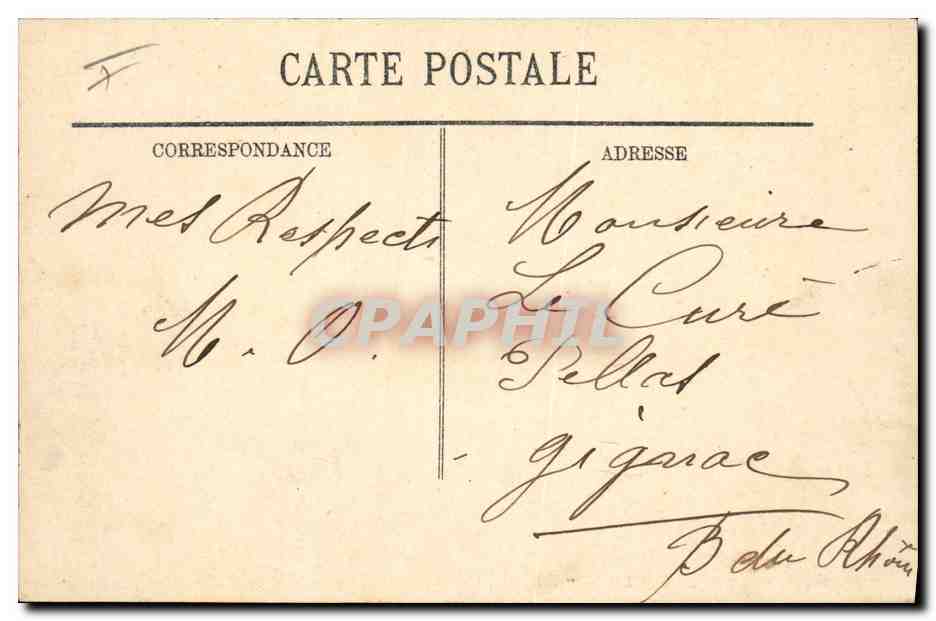 CARTE POSTALE
CORRESPONDANCE
mes Respects
M. O.
ADRESSE
Monsieure
Le Curé
Pellas
gignac
B du Rhône
CPAPHIL